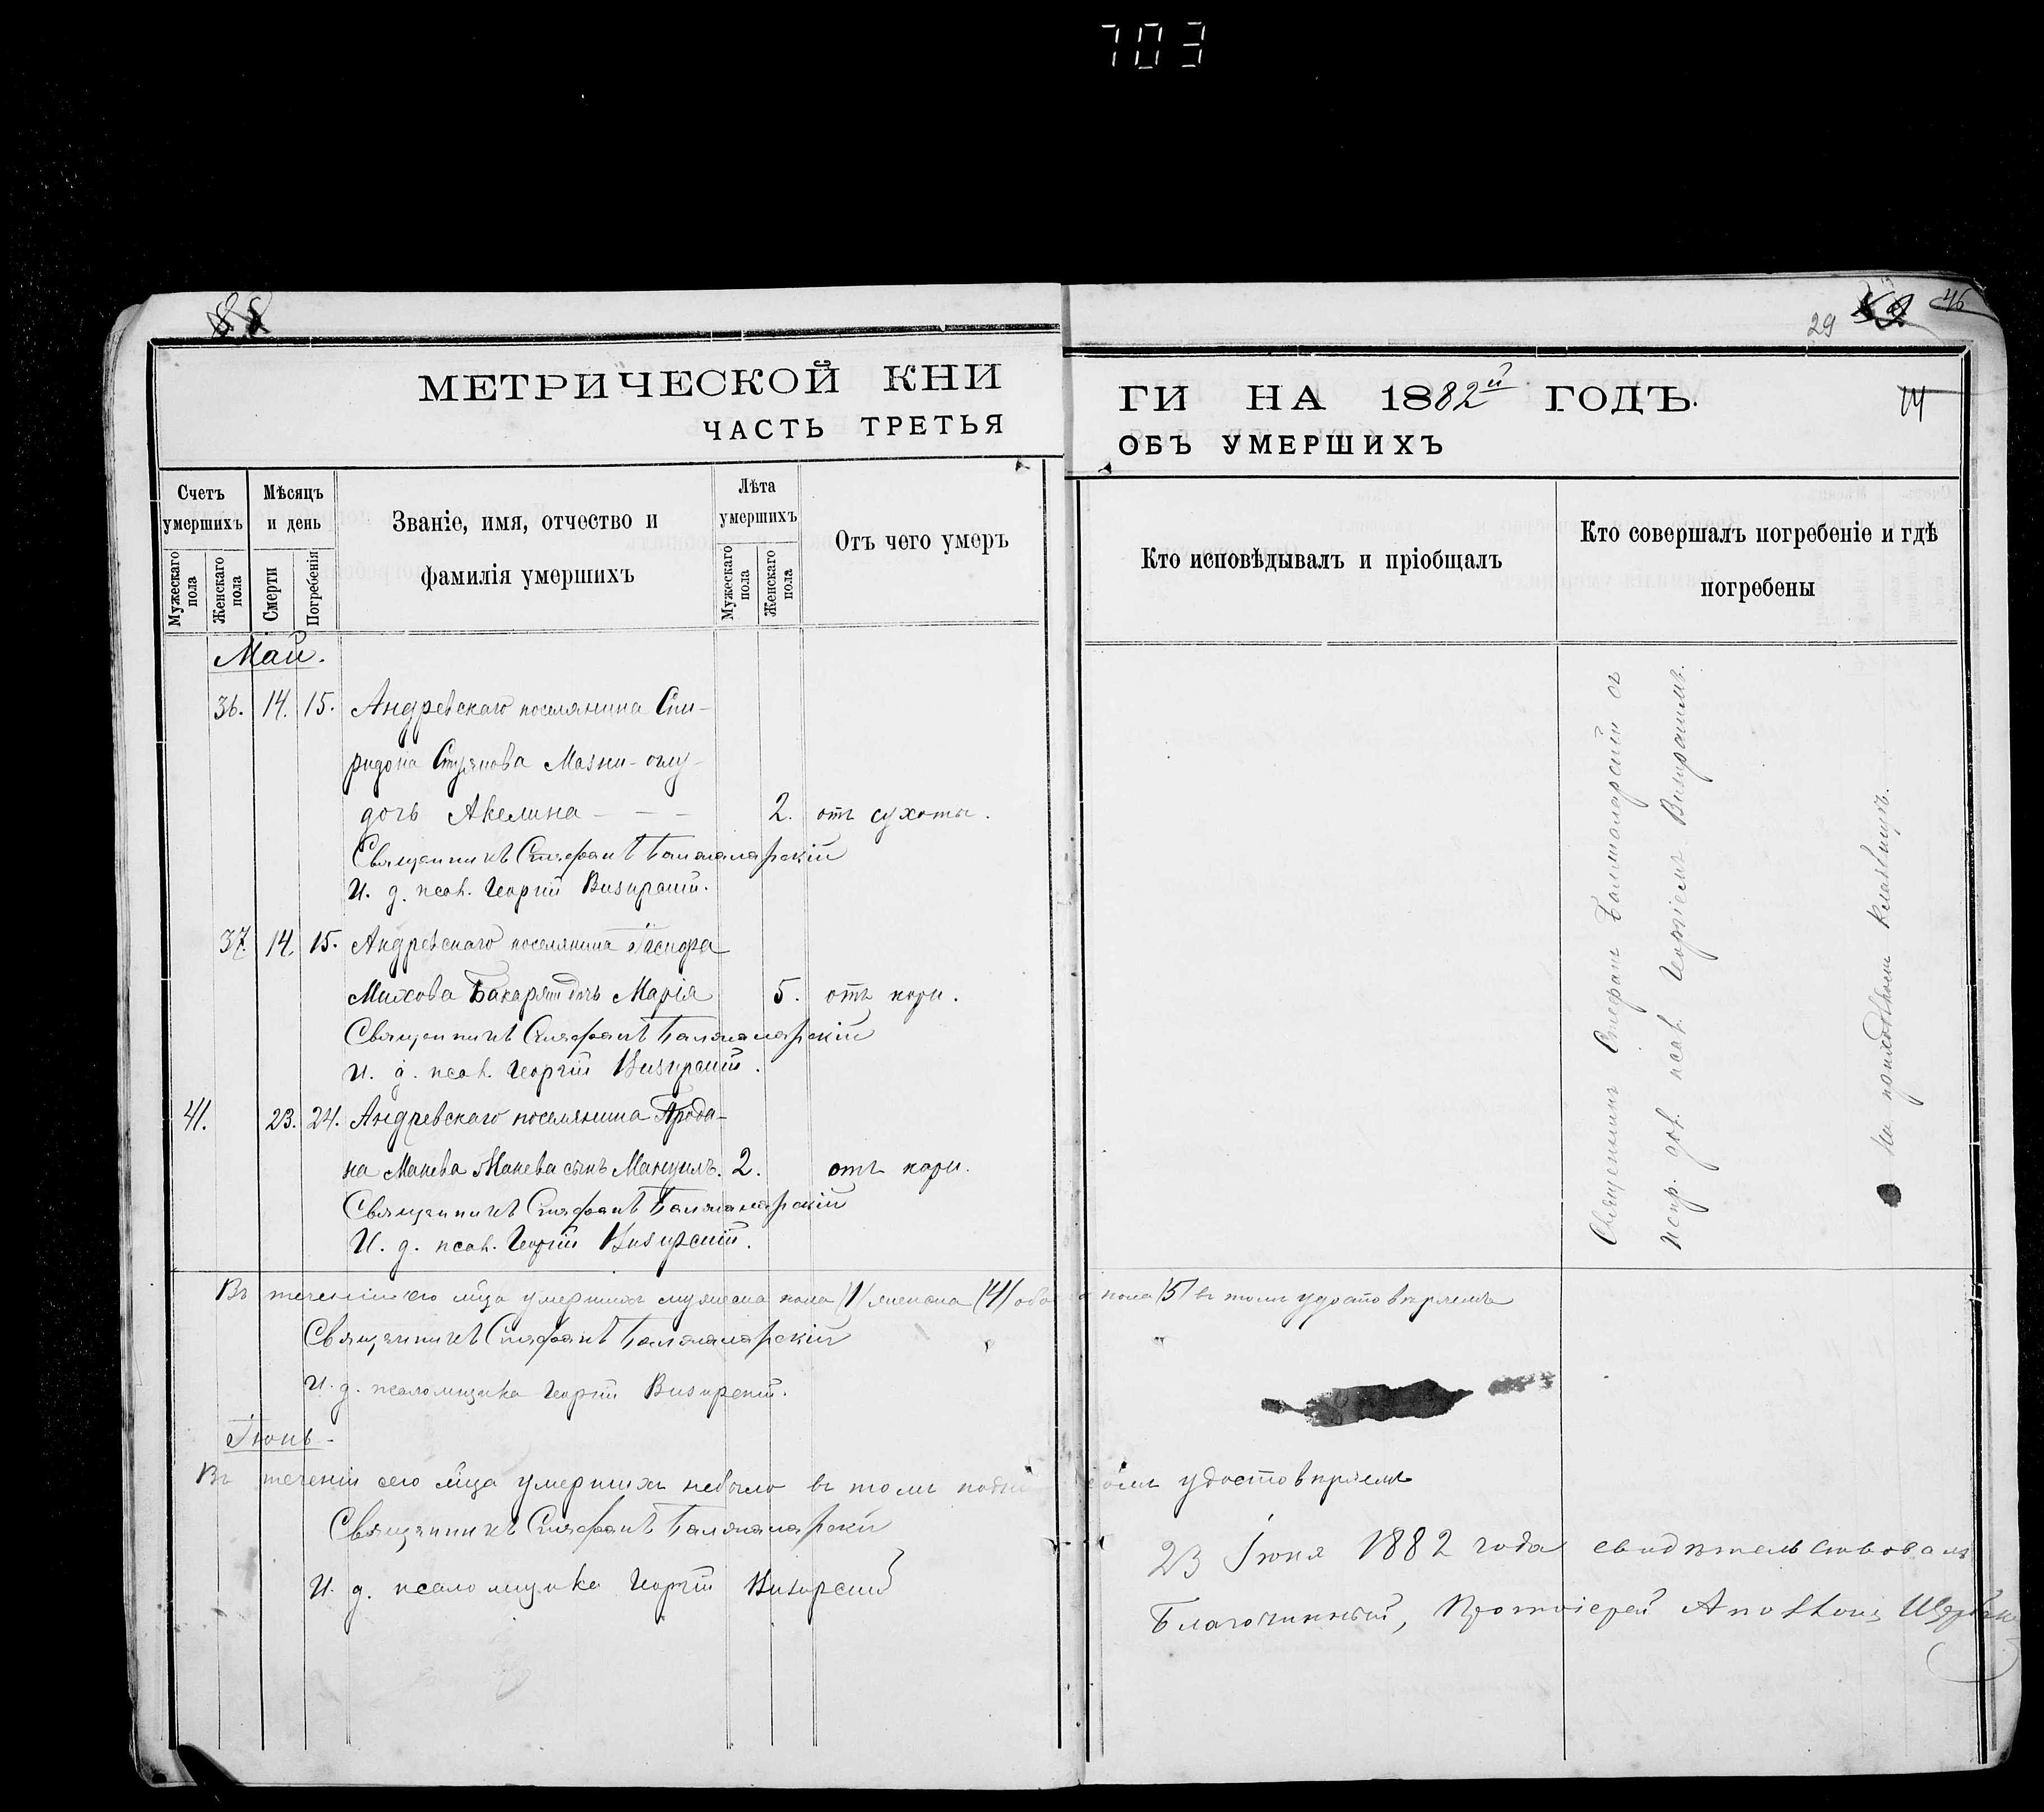 703
88
МЕТРИЧЕСКОЙ КНИ
ЧАСТЬ ТРЕТЬЯ
Счетъ умершихъ
Мужескаго пола
Женскаго пола
Мѣсяцъ и день
Смерти
Погребенія
Званіе, имя, отчество и
фамилія умершихъ
Лѣта умершихъ
Мужескаго пола
Женскаго пола
Отъ чего умеръ
Май.
36. 14. 15. Андревскаго поселянина Спи-
ридона Стуянова Мазни-оглу
дочь Акелина - - - 2. отъ сухоты.
Священникъ Стефанъ
И. д. псал. Георгій Визирскій.
37. 14. 15. Андревскаго поселянина
Милкова дочь Марія 5. отъ кори.
Священникъ Стефанъ
И. д. псал. Георгій Визирскій.
41. 23. 24. Андревскаго поселянина Прода-
на Манева Манева сынъ Мануилъ. 2. отъ кори.
Священникъ Стефанъ
И. д. псал. Георгій Визирскій.
Въ теченіи сего мѣца умершихъ мужеска пола /1/ женска /4/ обо пола /5/ въ томъ удостовѣряемъ
Священникъ Стефанъ
И. д. псаломщика Георгій Визирскій.
Іюнь.
Въ теченіи сего мѣца умершихъ небыло въ томъ удостовѣряемъ
Священникъ Стефанъ
И. д. псаломщика Георгій Визирскій
29 46
ГИ НА 1882й ГОДЪ.
14
ОБЪ УМЕРШИХЪ
Кто исповѣдывалъ и пріобщалъ
Кто совершалъ погребеніе и гдѣ
погребены
Священникъ Стефанъ съ
испр. дол. псал. Георгіемъ Визирскимъ.
на приходскомъ кладбищѣ.
23 Іюня 1882 года свидѣтельствовалъ
Благочинный, Протоіерей